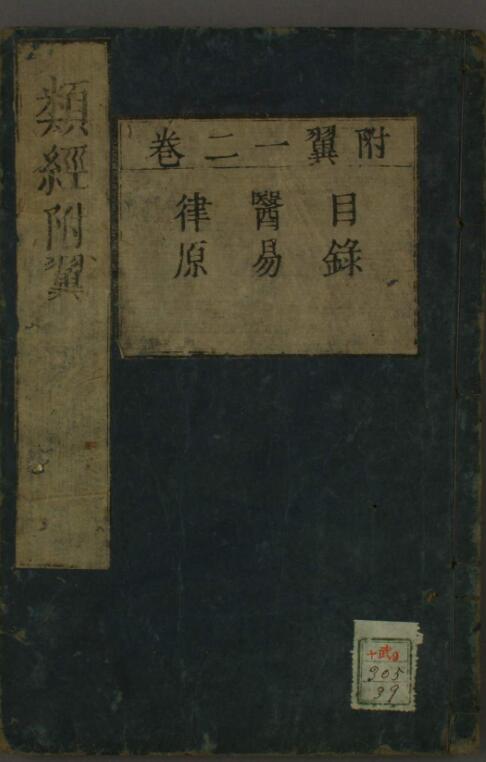 類經附翼
附翼一二卷
目錄
醫易
律原
十武9
305
39